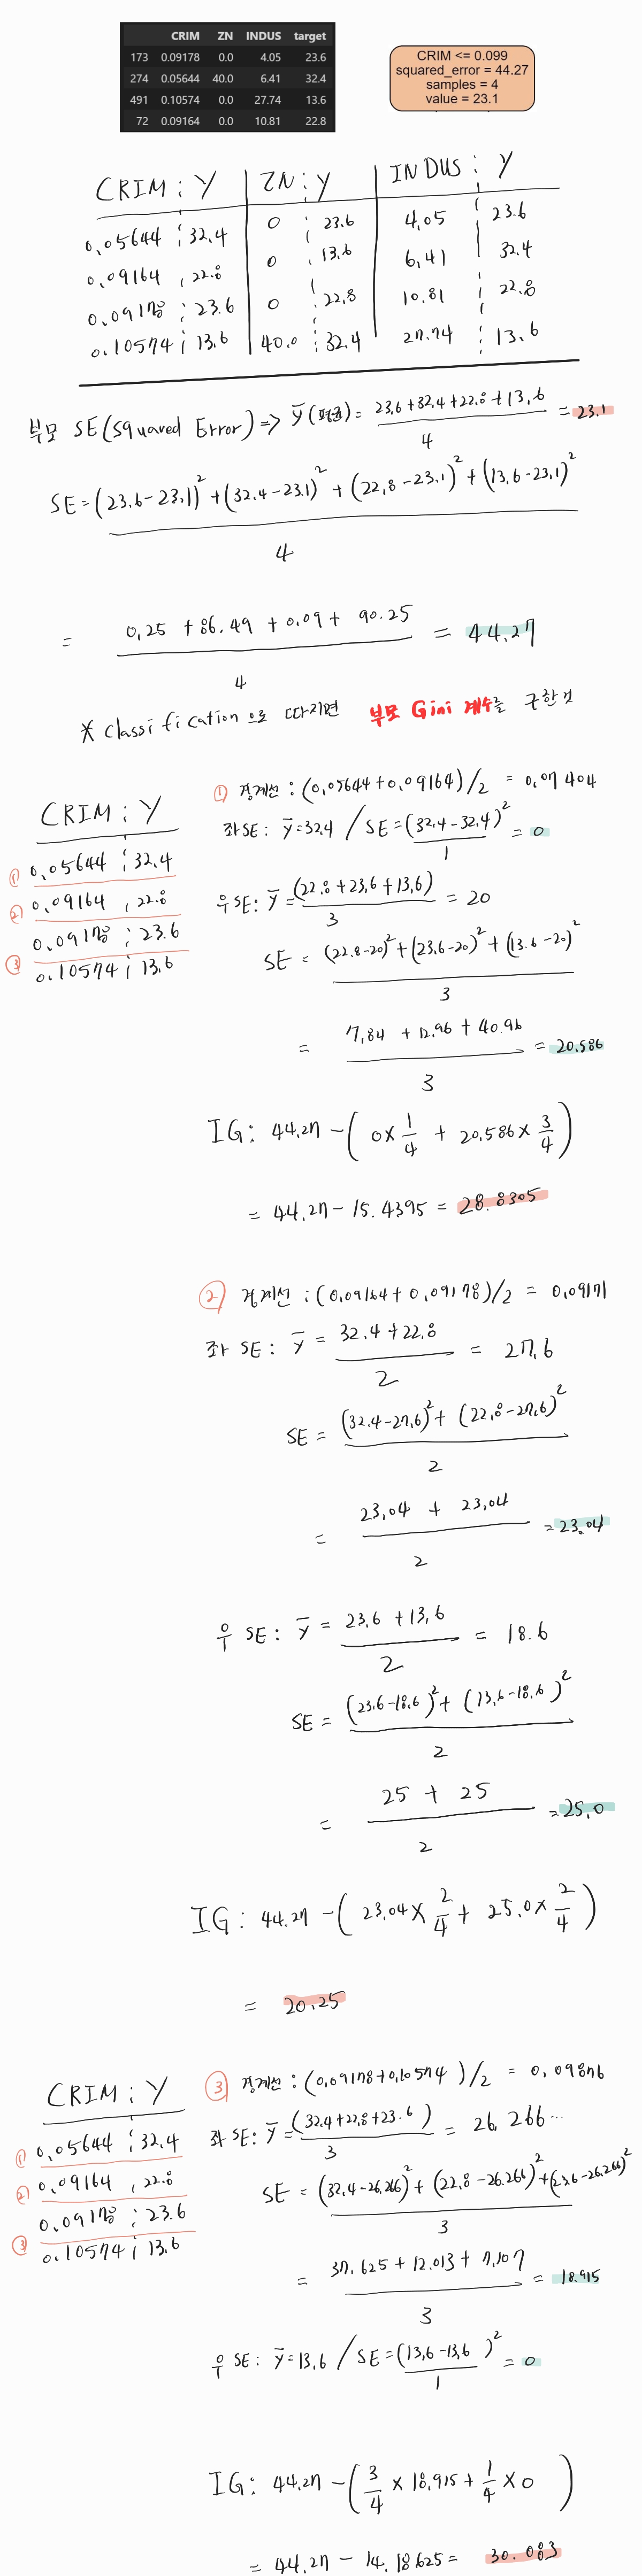 CRIM ZN INDUS target
173 0.09178 0.0 4.05 23.6
274 0.05644 40.0 6.41 32.4
491 0.10574 0.0 27.74 13.6
72 0.09164 0.0 10.81 22.8
CRIM <= 0.099
squared_error = 44.27
samples = 4
value = 23.1
CRIM : Y | ZN : Y | INDUS : Y
0.05644 : 32.4 | 0 : 23.6 | 4.05 : 23.6
0.09164 , 22.8 | 0 . 13.6 | 6.41 | 32.4
0.09178 : 23.6 | 0 : 22.8 | 10.81 : 22.8
0.10574 ; 13.6 | 40.0 : 32.4 | 27.74 : 13.6
부모 SE(squared Error) => ȳ(평균) = (23.6+32.4+22.8+13.6)/4 = 23.1
SE = ((23.6-23.1)² + (32.4-23.1)² + (22.8-23.1)² + (13.6-23.1)²)/4
= (0.25 + 86.49 + 0.09 + 90.25)/4 = 44.27
* Classification 으로 따지면 부모 Gini 계수를 구한것
CRIM : Y
① 0.05644 : 32.4
② 0.09164 , 22.8
0.09178 : 23.6
③ 0.10574 ; 13.6
① 경계선 : (0.05644+0.09164)/2 = 0.07404
좌SE: ȳ=32.4 / SE = (32.4-32.4)²/1 = 0
우SE: ȳ = (22.8+23.6+13.6)/3 = 20
SE = ((22.8-20)² + (23.6-20)² + (13.6-20)²)/3
= (7.84 + 12.96 + 40.96)/3 = 20.586
IG: 44.27 - (0 × 1/4 + 20.586 × 3/4)
= 44.27 - 15.4395 = 28.8305
② 경계선 : (0.09164+0.09178)/2 = 0.09171
좌 SE: ȳ = (32.4+22.8)/2 = 27.6
SE = ((32.4-27.6)² + (22.8-27.6)²)/2
= (23.04 + 23.04)/2 = 23.04
우 SE: ȳ = (23.6+13.6)/2 = 18.6
SE = ((23.6-18.6)² + (13.6-18.6)²)/2
= (25 + 25)/2 = 25.0
IG: 44.27 - (23.04 × 2/4 + 25.0 × 2/4)
= 20.25
CRIM : Y
① 0.05644 : 32.4
② 0.09164 , 22.8
0.09178 : 23.6
③ 0.10574 ; 13.6
③ 경계선 : (0.09178+0.10574)/2 = 0.09876
좌 SE: ȳ = (32.4+22.8+23.6)/3 = 26.266...
SE = ((32.4-26.266)² + (22.8-26.266)² + (23.6-26.266)²)/3
= (37.625 + 12.013 + 7.107)/3 = 18.915
우 SE: ȳ=13.6 / SE = (13.6-13.6)²/1 = 0
IG: 44.27 - (3/4 × 18.915 + 1/4 × 0)
= 44.27 - 14.18625 = 30.083